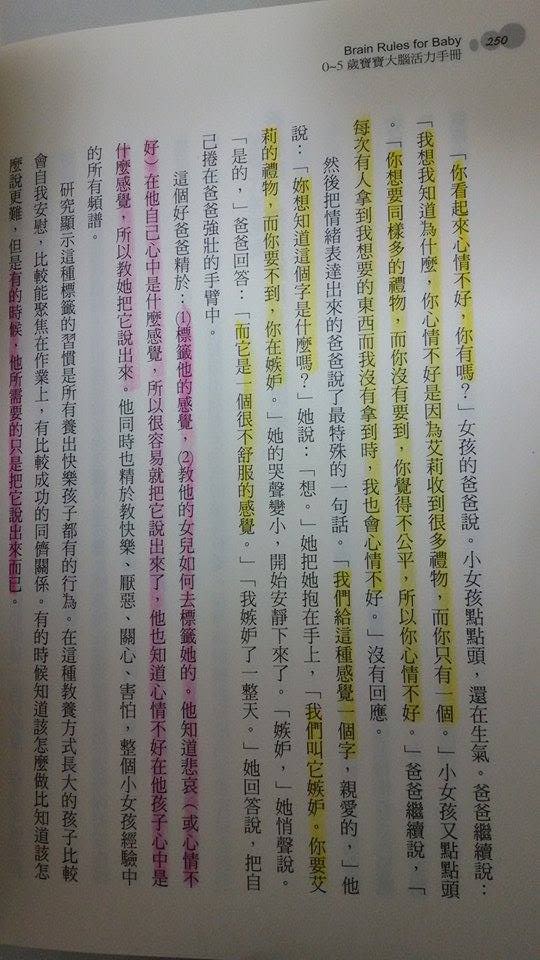 250
Brain Rules for Baby
0~5 歲寶寶大腦活力手冊
「你看起來心情不好，你有嗎？」女孩的爸爸說。小女孩點點頭，還在生氣。爸爸繼續說：
「我想我知道為什麼，你心情不好是因為艾莉收到很多禮物，而你只有一個。」小女孩又點點頭
。「你想要同樣多的禮物，而你沒有要到，你覺得不公平，所以你心情不好。」爸爸繼續說，「
每次有人拿到我想要的東西而我沒有拿到時，我也會心情不好。」沒有回應。
然後把情緒表達出來的爸爸說了最特殊的一句話。「我們給這種感覺一個字，親愛的，」他
說：「妳想知道這個字是什麼嗎？」她說：「想。」她把她抱在手上，「我們叫它嫉妒。你要艾
莉的禮物，而你要不到，你在嫉妒。」她的哭聲變小，開始安靜下來了。「嫉妒，」她悄聲說。
「是的，」爸爸回答：「而它是一個很不舒服的感覺。」「我嫉妒了一整天。」她回答說，把自
己捲在爸爸強壯的手臂中。
這個好爸爸精於：⑴標籤他的感覺，⑵教他的女兒如何去標籤她的。他知道悲哀（或心情不
好）在他自己心中是什麼感覺，所以很容易就把它說出來了，他也知道心情不好在他孩子心中是
什麼感覺，所以教她把它說出來。他同時也精於教快樂、厭惡、關心、害怕，整個小女孩經驗中
的所有頻譜。
研究顯示這種標籤的習慣是所有養出快樂孩子都有的行為。在這種教養方式長大的孩子比較
會自我安慰，比較能聚焦在作業上，有比較成功的同儕關係。有的時候知道該怎麼做比知道該怎
麼說更難，但是有的時候，他所需要的只是把它說出來而已。